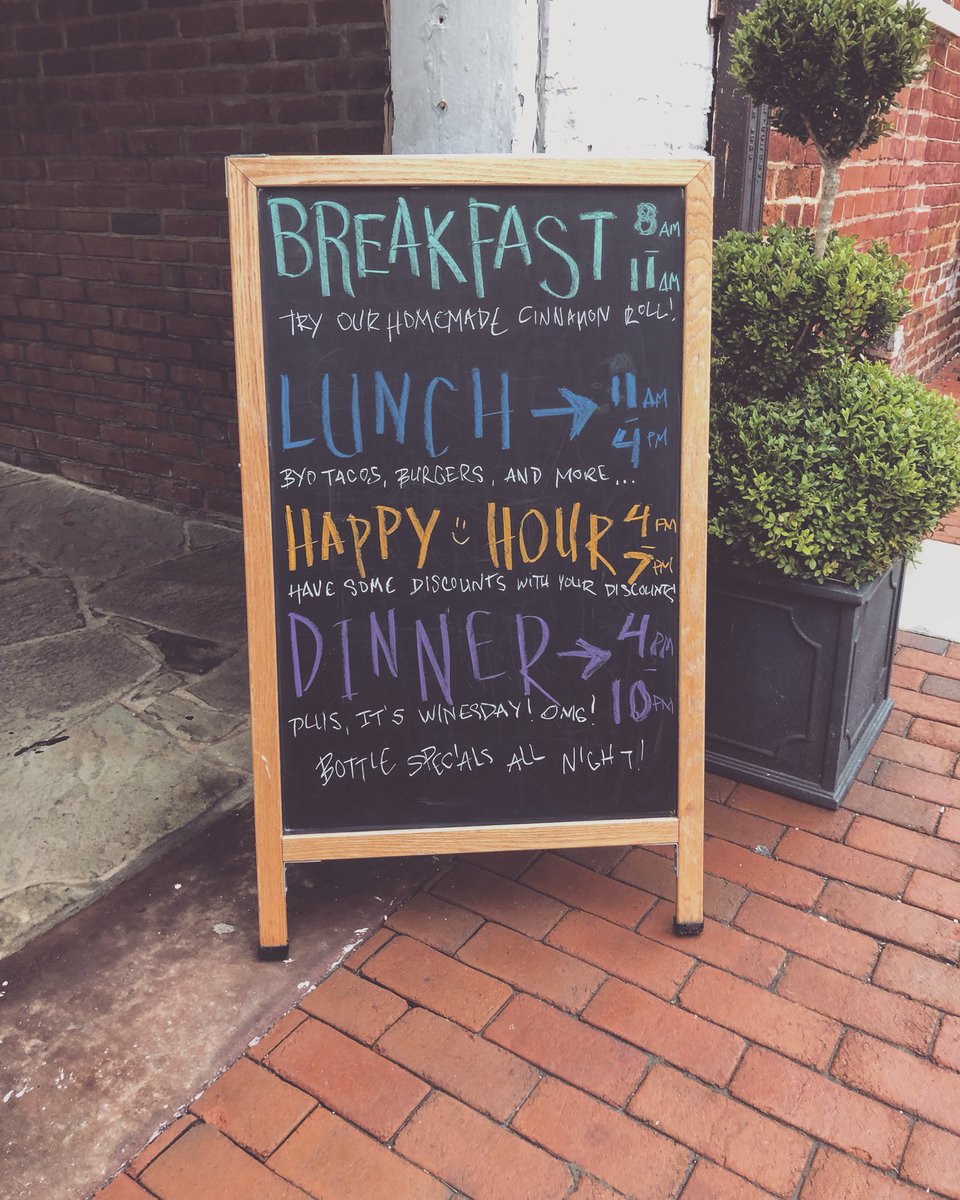 BREAKFAST 8 AM – 11 AM
TRY OUR HOMEMADE CINNAMON ROLL!
LUNCH → 11 AM – 4 PM
BYO TACOS, BURGERS, AND MORE...
HAPPY HOUR 4 PM – 7 PM
HAVE SOME DISCOUNTS WITH YOUR DISCOUNTS
DINNER → 4 PM – 10 PM
PLUS, IT'S WINESDAY! OMG!
BOTTLE SPECIALS ALL NIGHT!!